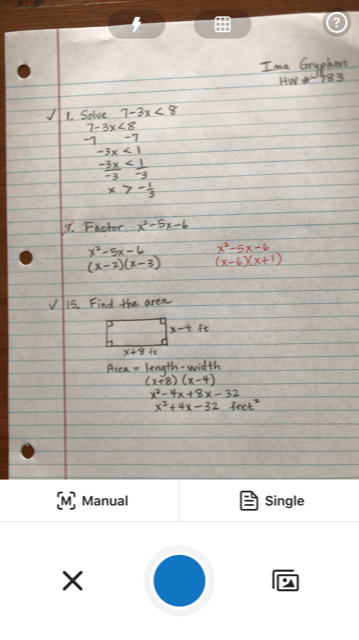 ?
Ima Gryphon
HW # 783
✓ 1. Solve 7-3x < 8
7-3x < 8
-7 -7
-3x < 1
-3x < 1
-3 -3
x > -1/3
9. Factor x²-5x-6
x²-5x-6 x²-5x-6
(x-2)(x-3) (x-6)(x+1)
✓ 15. Find the area
x-4 ft
x+8 ft
Area = length · width
(x+8)(x-4)
x²-4x+8x-32
x²+4x-32 feet²
[M] Manual
Single